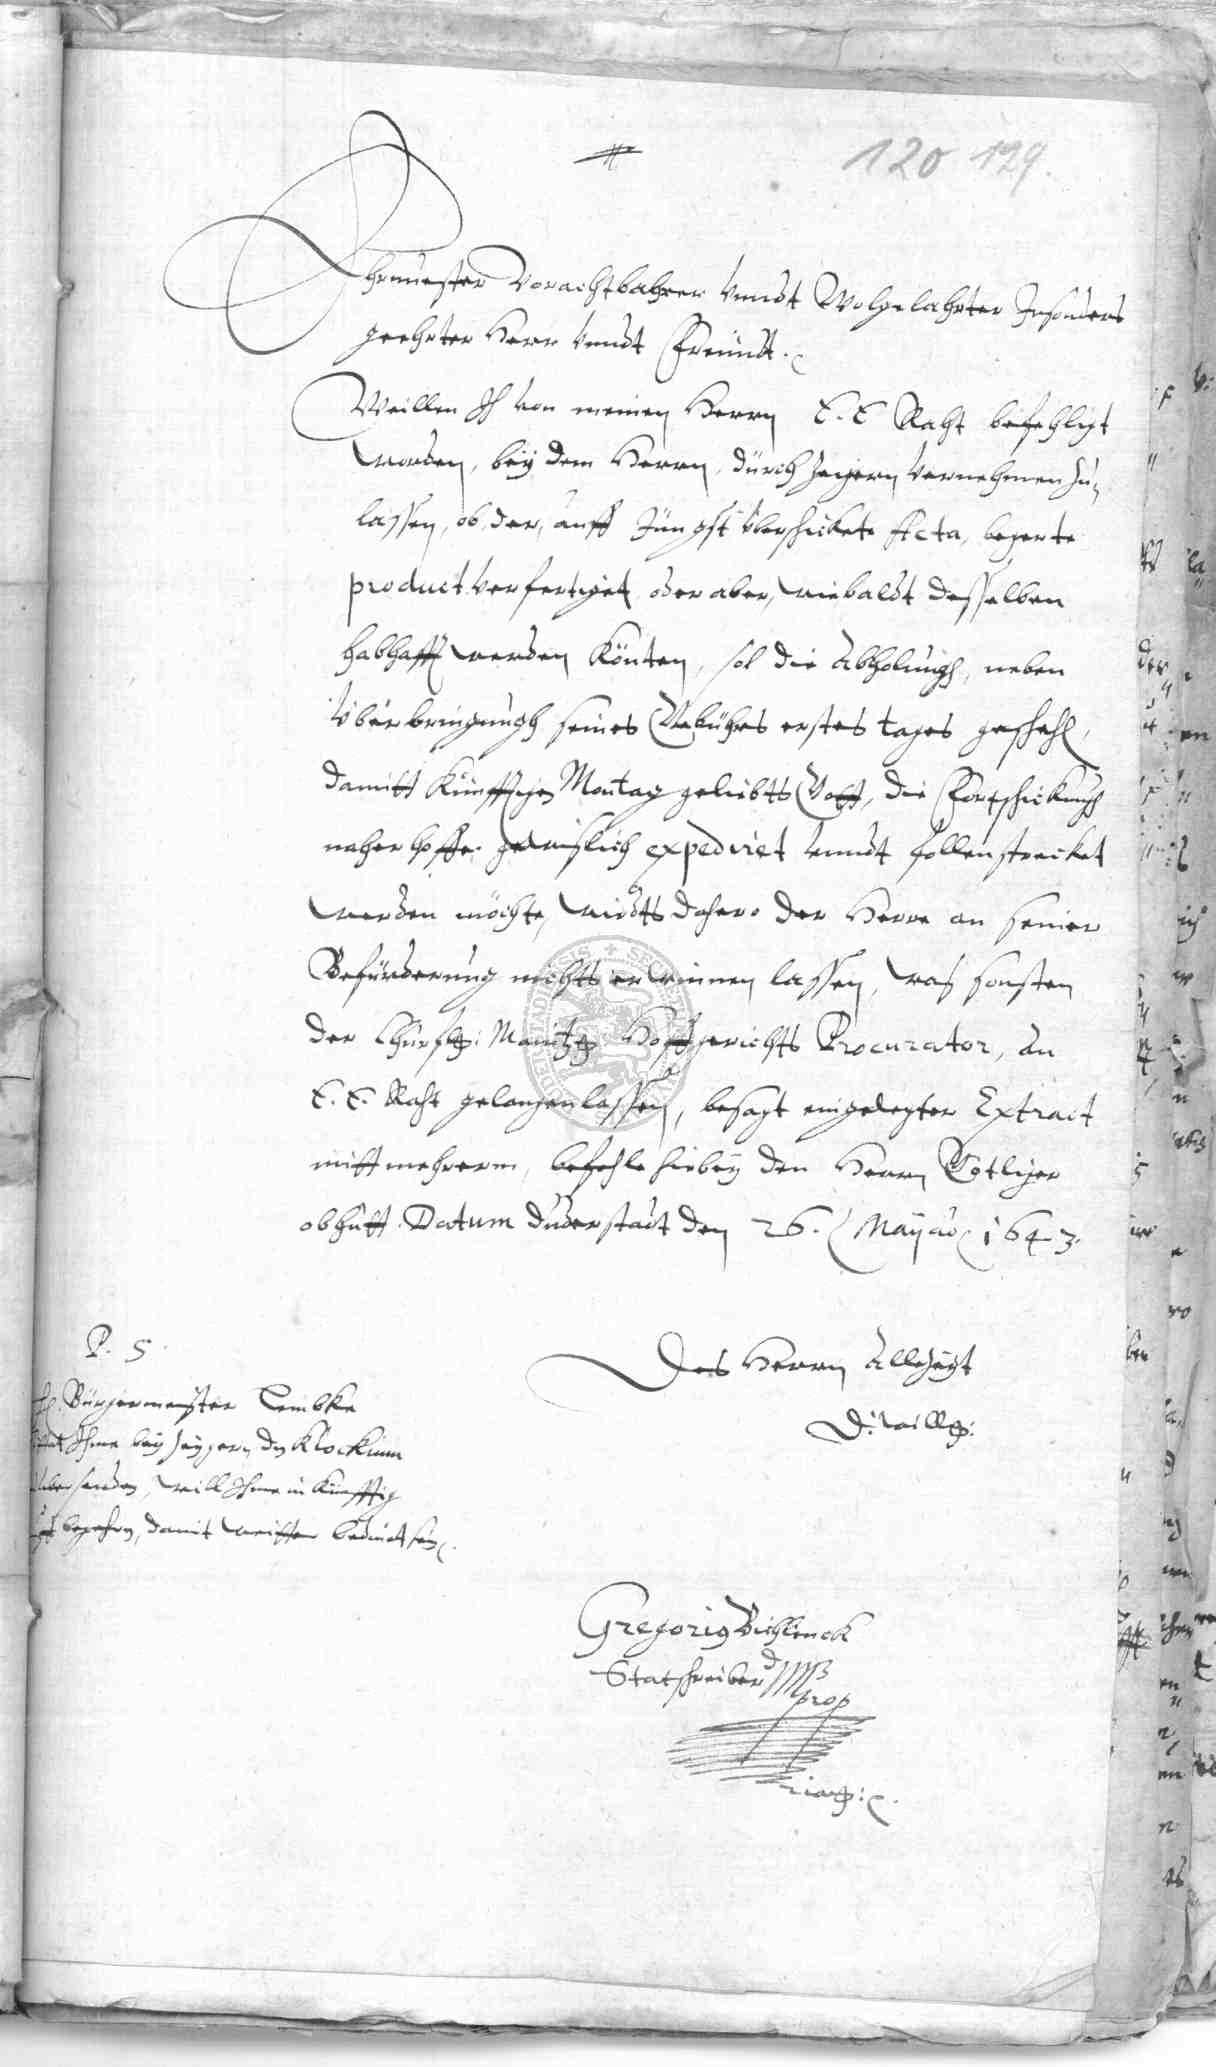 120 129.
Ehrnuester Vorachtbahrer Vnndt Wolgelahrter Insonders
geehrter Herr Vnndt Freundt.
Weillen Ich von meinen Herrn E. E Raht befehligt
worden, bey dem Herrn, durch Zeigern Vernehmen zu
lassen, ob, der, auff Jüngst überschickete Acta, begerte
product Verfertiget oder aber, wiebaldt desselben
habhafft werden Könten, sol die Abholungh, neben
Überbringungh seines Gebühres erstes tages geschehen,
damitt Künfftigen Montag geliebts Gott, die Fortschickungh
naher hoffe gewislich expediret Vnndt follenstrecket
werden möchte, wirdts dahero der Herr an seiner
Befürderung nichts erwinnen lassen, was sonsten
der Churfl: Maintz Hoffgerichts Procurator, an
E. E. Raht gelangen lassen, besagt eingelegter Extract
mitt mehrerm, befehle hiebey den Herrn Götliger
obhutt. Datum Duderstadt den 26. May ao 1643.
Des Herrn Allezeyt
D: will:
P. S.
H. Bürgermeister Lembke
Ihme bey Zeigern, daß Klockium
übersenden, will Ihme in Künfftig
begehren, damit weitter bedient sein.
Gregorius Bichlinck
Statschreiber Mp
prop